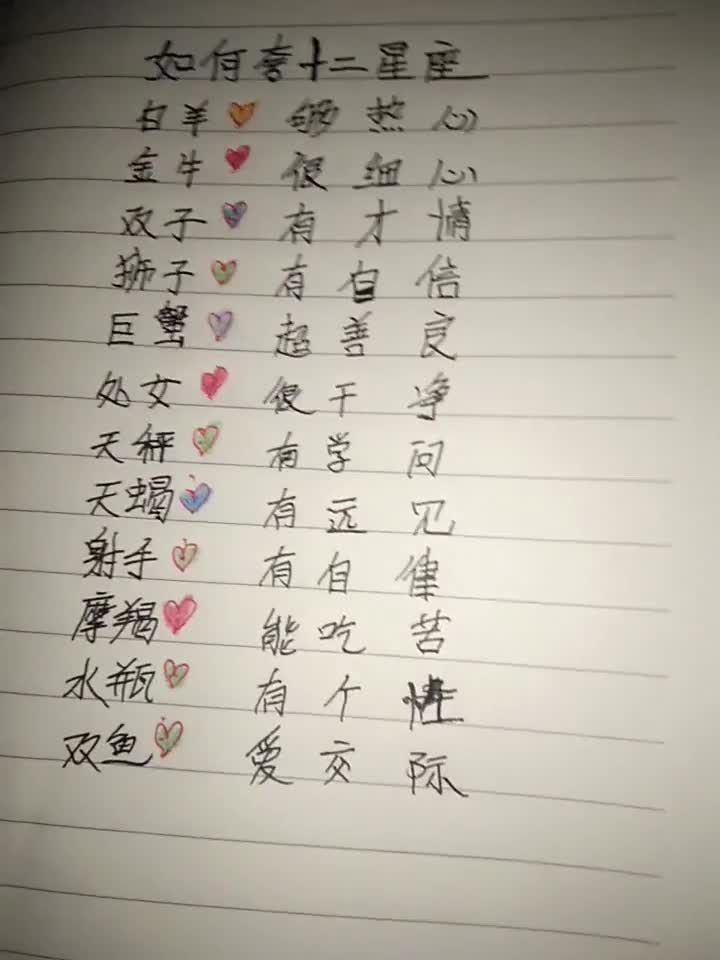 如何夸十二星座
白羊 够热心
金牛 很细心
双子 有才情
狮子 有自信
巨蟹 超善良
处女 很干净
天秤 有学问
天蝎 有远见
射手 有自律
摩羯 能吃苦
水瓶 有个性
双鱼 爱交际